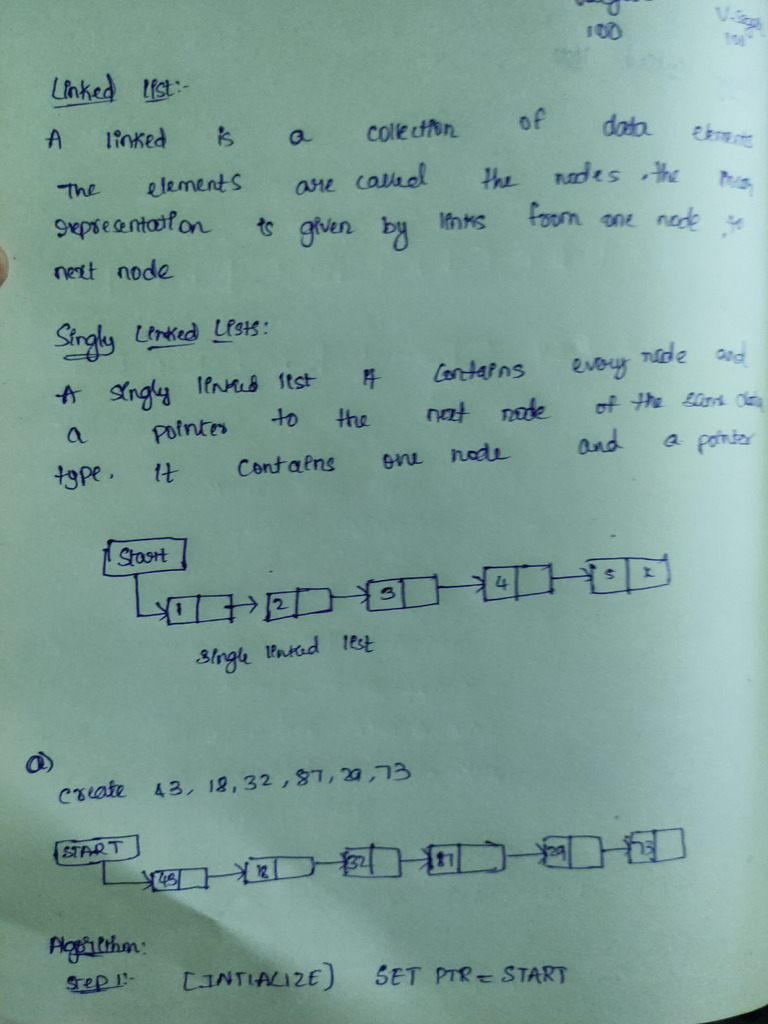 100
101
Linked list:-
A linked is a collection of data elements
The elements are called the nodes. the
representation is given by links from one node to
next node
Singly Linked Lists:
A singly linked list it contains every node and
a pointer to the next node of the same data
type. It contains one node and a pointer
Start
1 2 3 4 5 X
Single linked list
a)
create 43, 18, 32, 87, 29, 73
START
43 18 32 87 29 73
Algorithm:
Step 1:- [INTIALIZE] SET PTR = START